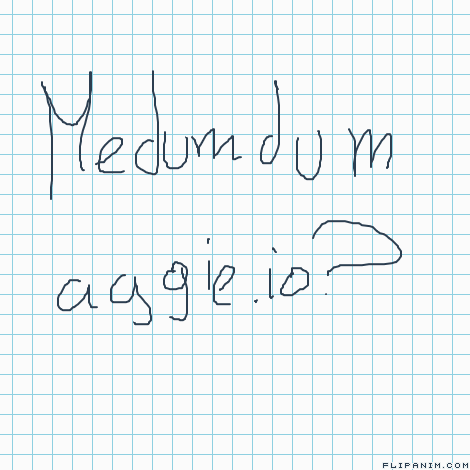 Medumdum
aggie.io?
FLIPANIM.COM